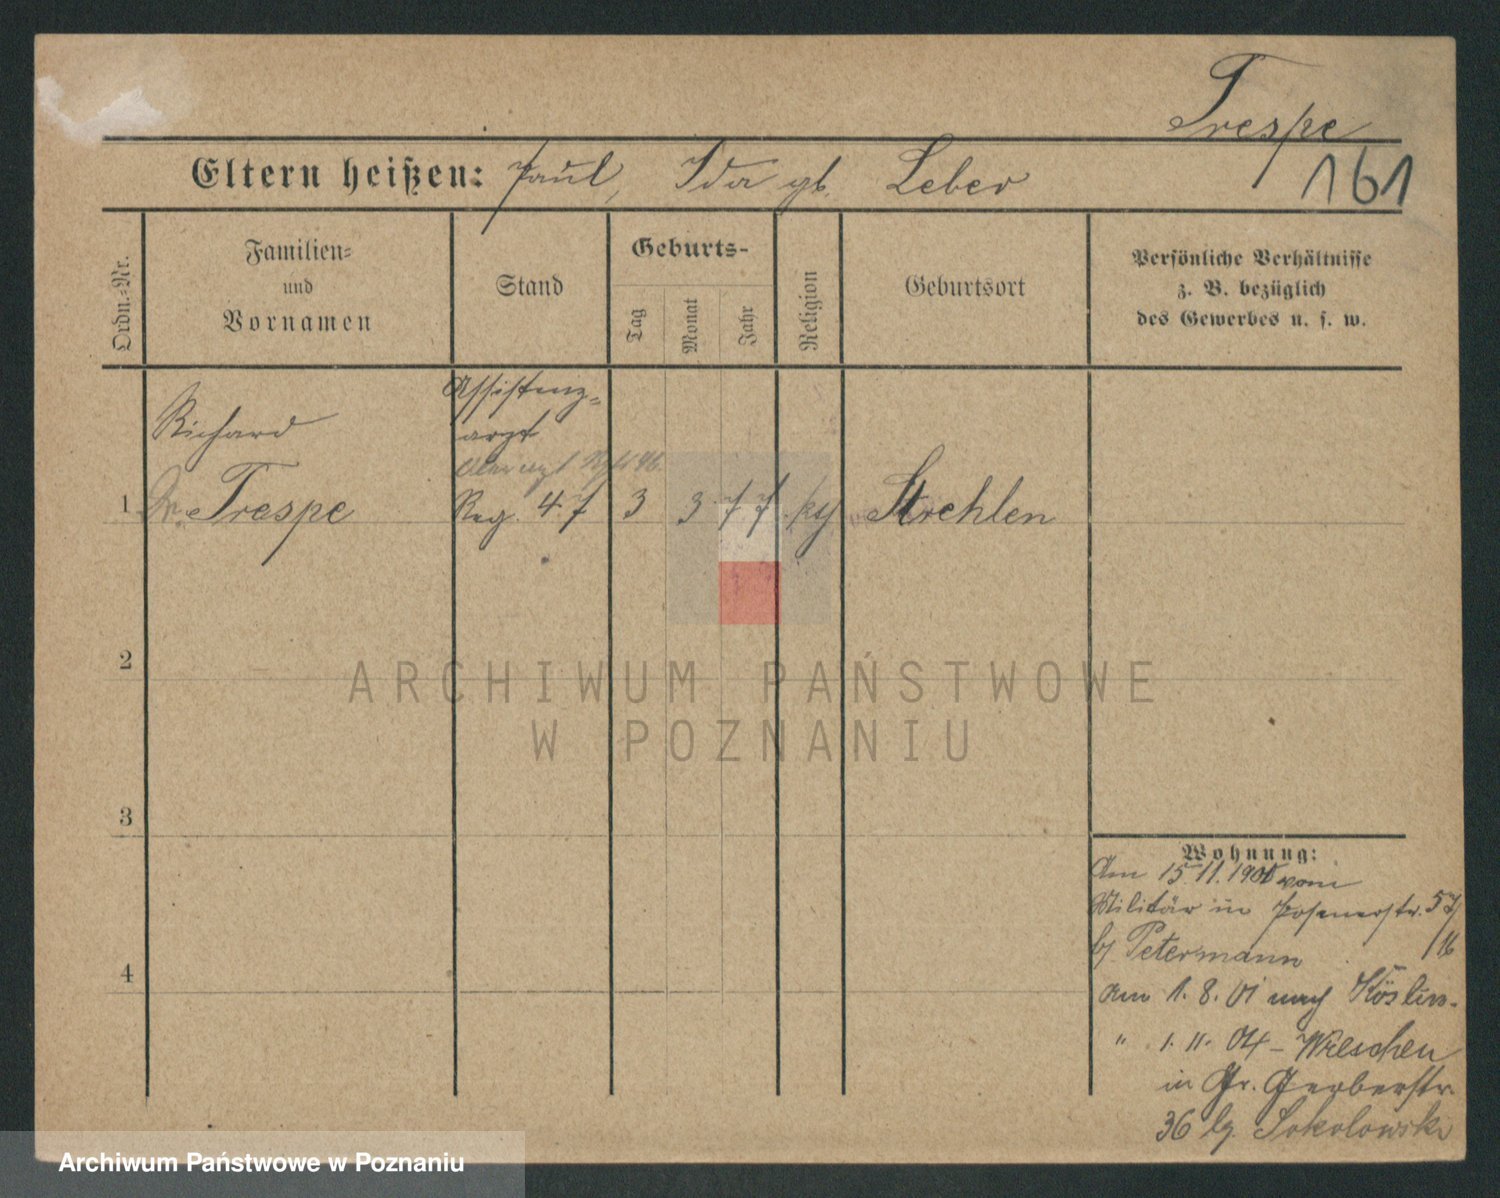 Trespe
Eltern heißen: Paul, Ida gb. Leber
161
Ordn.-Nr.
Familien-
und
Vornamen
Stand
Geburts-
Tag
Monat
Jahr
Religion
Geburtsort
Persönliche Verhältnisse
z. B. bezüglich
des Gewerbes u. s. w.
Richard
Assistenz-
arzt
1 Dr. Trespe Reg. 47 3 3 77 Strehlen
2
ARCHIWUM PAŃSTWOWE
W POZNANIU
3
4
Wohnung:
Am 15.11.1900 vom
Militär in Posenerstr. 57/
b/ Petermann /16
am 1. 8. 01 nach Köslin.
" 1. 11. 04 - Wreschen
in Gr. Gerberstr.
36 bg. Sokolowski
Archiwum Państwowe w Poznaniu